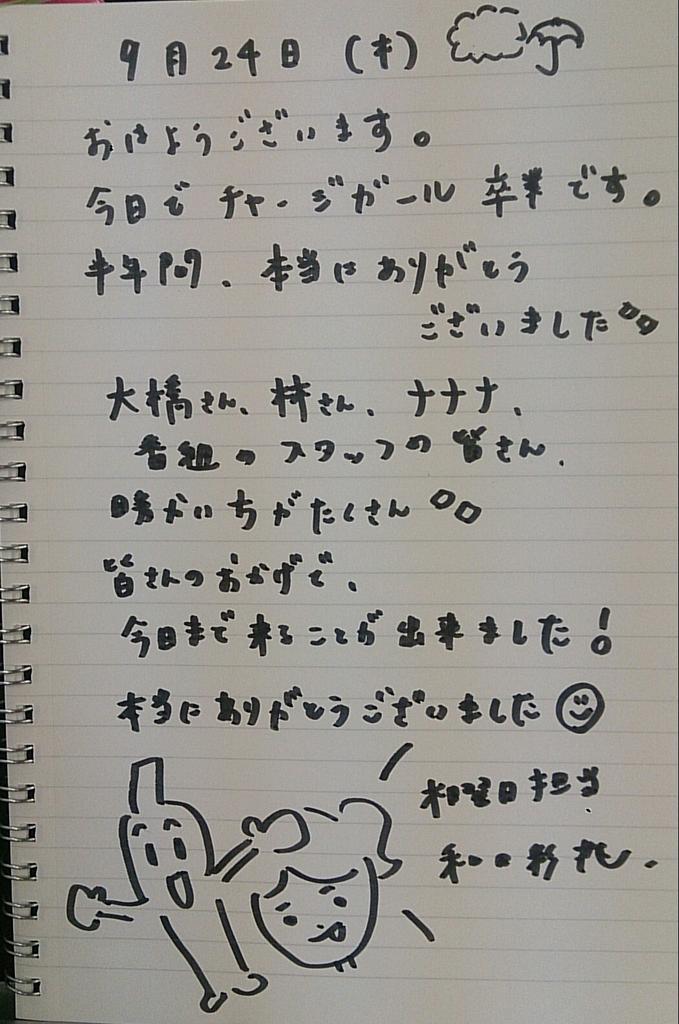 9月24日（木）
おはようございます。
今日でチャージガール卒業です。
半年間、本当にありがとう
ございました
大橋さん、林さん、ナナナ、
番組のスタッフの皆さん、
暁かいちがたくさん
皆さんのおかげで、
今日まで来ることが出来ました！
本当にありがとうございました
木曜日担当